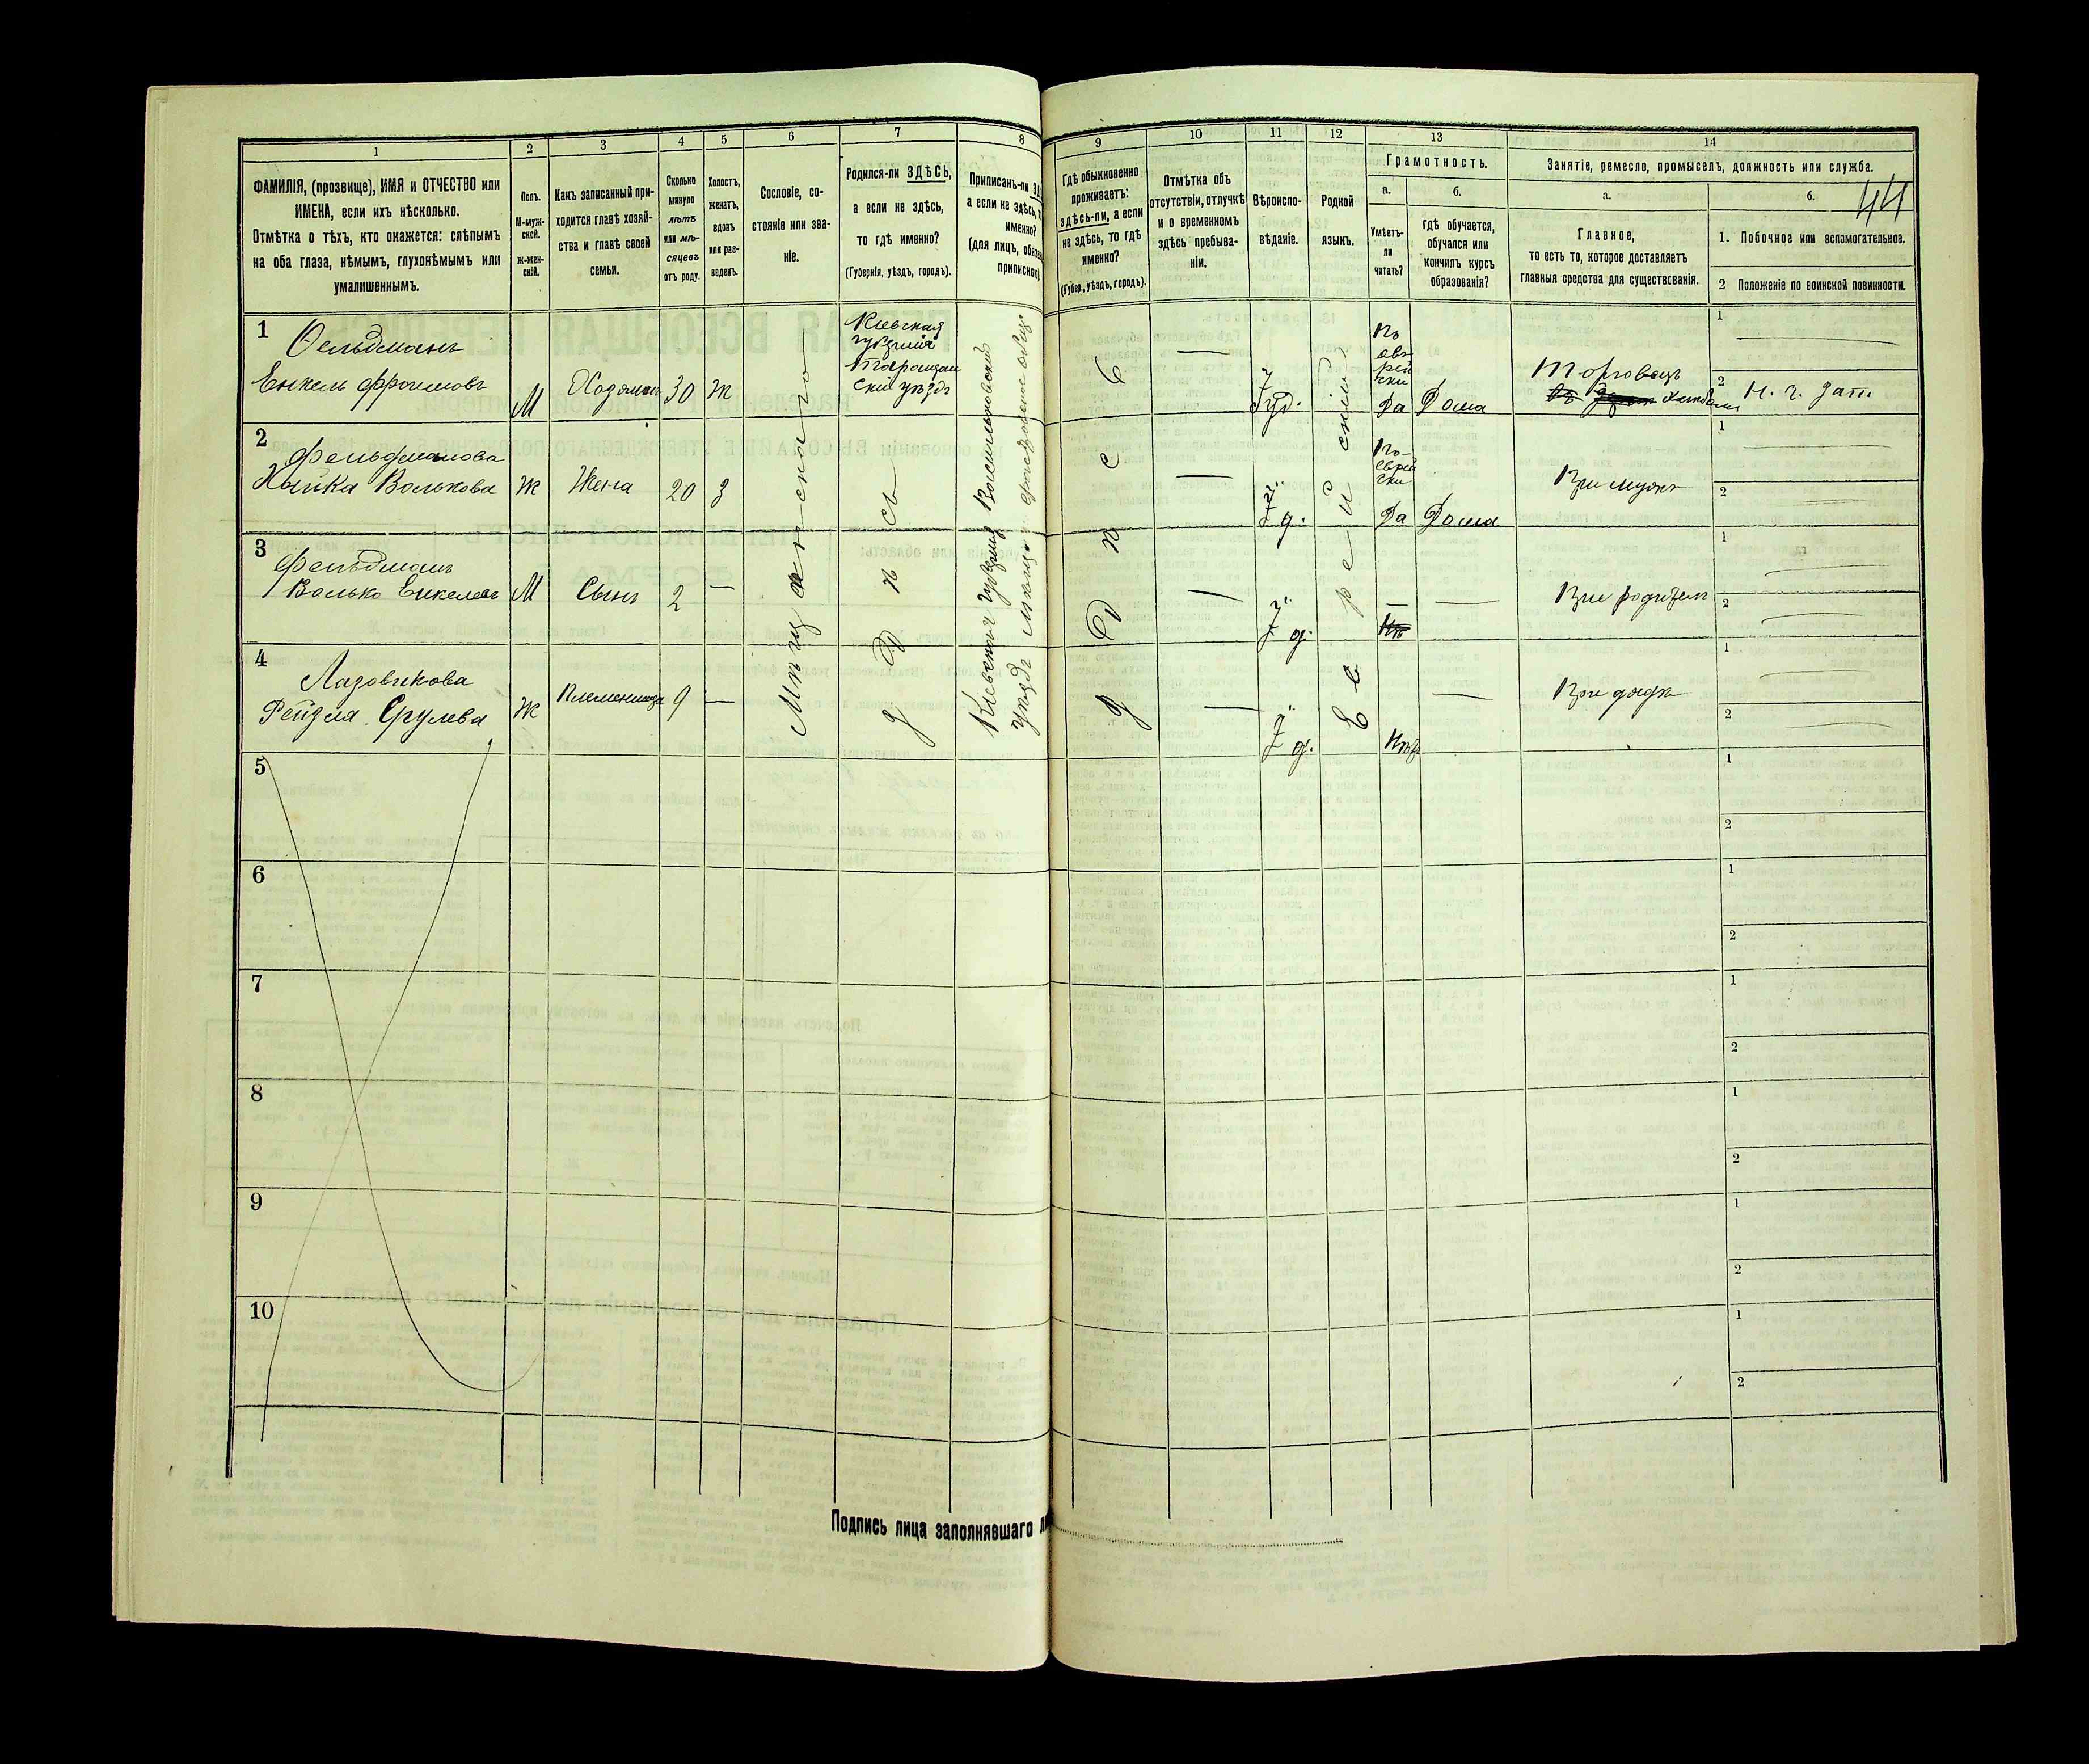 1
2
3
4
5
6
7
8
9
10
11
12
13
14
ФАМИЛІЯ, (прозвище), ИМЯ и ОТЧЕСТВО или
ИМЕНА, если ихъ нѣсколько.
Отмѣтка о тѣхъ, кто окажется: слѣпымъ
на оба глаза, нѣмымъ, глухонѣмымъ или
умалишеннымъ.
Полъ.
М-муж-
ской.
ж-жен-
скій.
Какъ записанный при-
ходится главѣ хозяй-
ства и главѣ своей
семьи.
Сколько
минуло
лѣтъ
или мѣ-
сяцевъ
отъ роду.
Холостъ,
женатъ,
вдовъ
или раз-
веденъ.
Сословіе, со-
стояніе или зва-
ніе.
Родился-ли ЗДѢСЬ,
а если не здѣсь,
то гдѣ именно?
(Губернія, уѣздъ, городъ).
Приписанъ-ли
а если не здѣсь,
именно?
(для лицъ,
Гдѣ обыкновенно
проживаетъ:
здѣсь-ли, а если
не здѣсь, то гдѣ
именно?
(Губер., уѣздъ, городъ).
Отмѣтка объ
отсутствіи, отлучкѣ
и о временномъ
здѣсь пребыва-
ніи.
Вѣроиспо-
вѣданіе.
Родной
языкъ.
Грамотность.
а.
Умѣетъ-
ли
читать?
б.
гдѣ обучается,
обучался или
кончилъ курсъ
образованія?
Занятіе, ремесло, промыселъ, должность или служба.
а.
Главное,
то есть то, которое доставляетъ
главныя средства для существованія.
б.
44
1. Побочное или вспомогательное.
2 Положеніе по воинской повинности.
1
Фельдманъ
Енкель Фроимовъ
М
Хозяинъ
30
ж
Кіевская
губернія
Таращан
скій уѣздъ
Іуд.
По
евр
рей
ски
Да
Дома
Торговецъ
1
2
2
Фельдманова
Хайка Волькова
Ж
Жена
20
З
І д.
По-
еврей
ски
Да
Дома
При мужѣ
1
2
3
Фельдманъ
Волько Енкелевъ
М
Сынъ
2
—
І д.
При родителѣ
1
2
4
Лазовикова
Рейзля Срулева
Ж
Племянница
9
—
І д.
Нѣтъ
При дядѣ
1
2
Мѣщанскаго
Здѣсь
Кіевской губерніи Васильковскій
уѣздъ
Здѣсь
Еврейскій
5
1
2
6
1
2
7
1
2
8
1
2
9
1
2
10
1
2
Подпись лица заполнявшаго